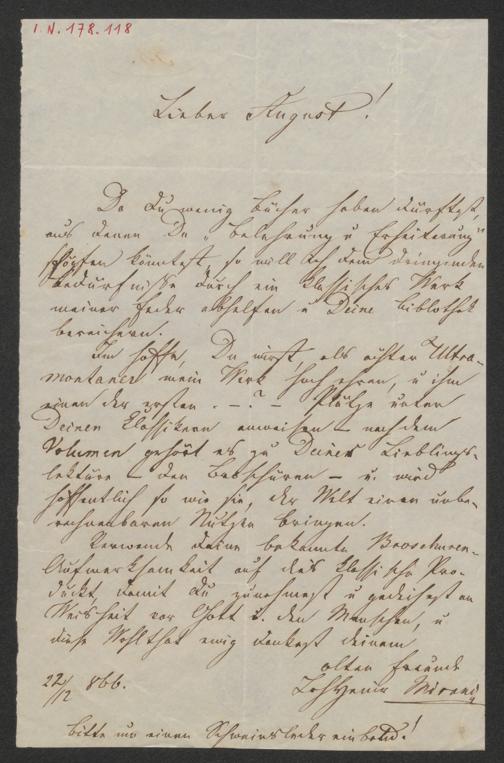 I. N. 178.118
Lieber August!
Da Du wenig Bücher haben dürftest,
aus denen Du „Belehrung u Erheiterung“
schöpfen könntest, so will ich dem dringenden
Bedürfnisse durch ein klassisches Werk
meiner Feder abhelfen u Deine Bibliothek
bereichern.
Ich hoffe, Du wirst, als ächter Ultra-
montaner mein Werk hoch ehren, u ihm
einen der ersten . – ? – Plätze unter
Deinen Klassikern anweisen – nach dem
Volumen gehört es zu Deiner Lieblings-
lektüre – den Broschüren – u. wird
hoffentlich so wie sie, der Welt einen unbe-
rechenbaren Nutzen bringen.
Verwende Deine bekannte Broschüren-
Aufmerksamkeit auf dies klassische Pro-
dukt, damit Du zunehmest u gedeihest an
Weisheit vor Gott u. den Menschen, u
diese Wohlthat ewig dankest deinem
alten Freunde
22/12 866.
Bitte um einen Schweinsledereinband!